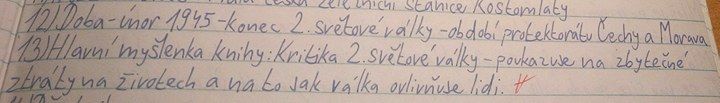 malá česká železniční stanice Kostomlaty
12) Doba - únor 1945 - konec 2. světové války - období protektorátu Čechy a Morava
13) Hlavní myšlenka knihy: Kritika 2. světové války - poukazuje na zbytečné
ztráty na životech a na to jak válka ovlivňuje lidi.